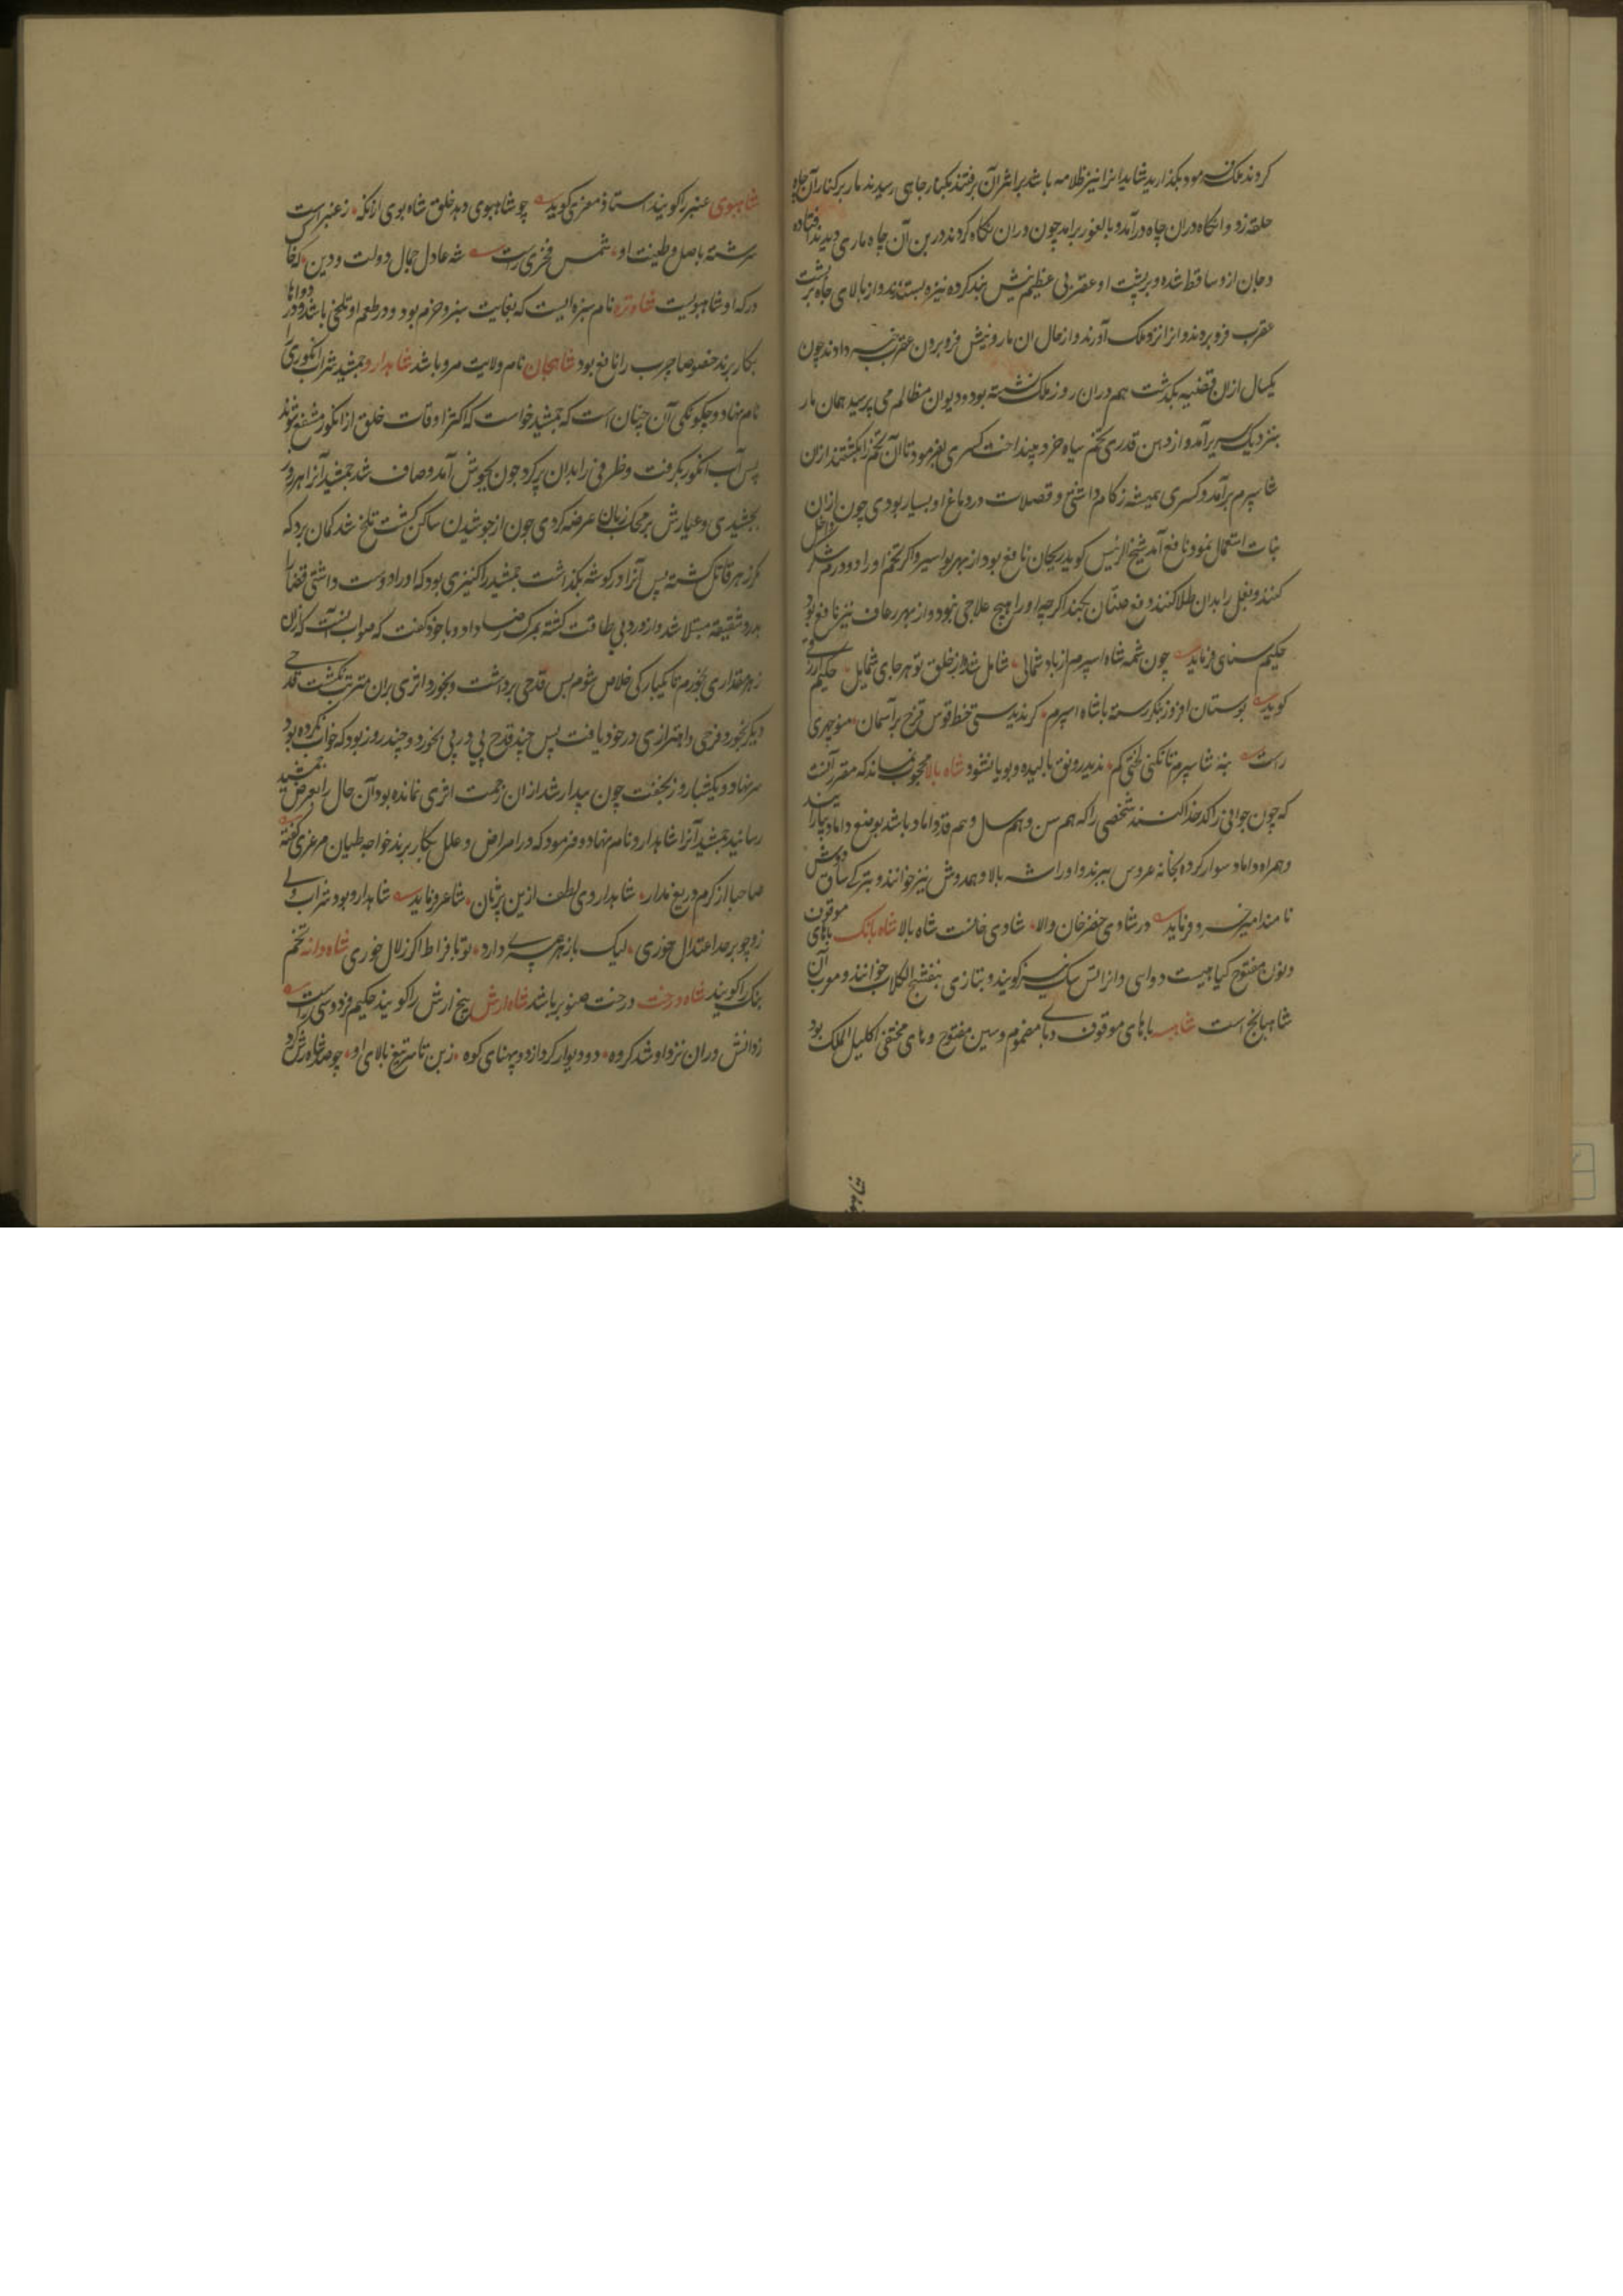 کردند ملک فرمود بگذارید شاید اینرا نیز ظلامه باشد بر اثر آن برفتند بکنار چاهی رسیدند مار بر کنار آن چاه
حلقه زد و انگاه دران چاه درآمد و بالفور برامد چون دران نگاه کردند در بن آن چاه ماری دیدند افتاده
و جان ازو ساقط شده و بر پشت او عقربی عظیم نیش بند کرده نیزه بستدند و از بالای چاه بر پشت
عقرب فرو بردند و انرا نزد ملک آوردند و از حال ان مار و نیش فرو بردن عقرب خبر دادند چون
یکسال ازان قضیه بگذشت هم دران روز ملک نشسته بود و دیوان مظالم می پرسید همان مار
بنزدیک سریر آمد و از دهن قدری تخم سیاه خرد بینداخت کسری بفرمود تا آن تخم را بکشتند ازان
شاسپرم برآمد و کسری همیشه زکام داشتی و فضلات در دماغ او بسیار بودی چون ازان
نبات استعمال نمود نافع آمد شیخ الرئیس گوید ریحان نافع بود از بهر بواسیر و اگر تخم او را دو درم داخل شکر
کنند و بغل را بدان طلا کنند دفع صنان بکند اگرچه او را هیچ علاجی نبود و از بهر رعاف نیز نافع بود
حکیم سنای فرماید چون شمه شاه اسپرم از باد شمالی شامل شده از خلق تو هر جای شمایل حکیم ازرقی
گوید بوستان افروز بنگر رسته با شاه اسپرم گر ندیدستی خط قوس قزح بر آسمان منوچهری
راست بنه شاسپرم تا نکنی لختی کم ندهد رونق و بالیده و بویا نشود شاه بالا محجوب نماند که مقرر آنست
که چون جوانی را کدخدا کنند شخصی را که هم سن و هم سال و همه قد داماد باشد بوضع داماد بیارایند
و همراه داماد سوار کرده بخانه عروس ببرند و او را شه بالا و همدوش نیز خوانند و بترکی ساق دوش
نامند امیر خسرو فرماید در شادی خضر خان والا شادی خانست شاه بالا شاه بانک باهای موقوف
و نون مفتوح گیاهیست دوای و انرا سگ نیز گویند و بتازی بنفشج الکلاب خوانند و معرب آن
شاهبانج است شاهبسه باهای موقوف و بای مضموم و سین مفتوح و های مختفی اکلیل الملک بود
شاهبوی عنبر را گویند استاد معزی گوید چو شاهبوی دهد خلق شاه بوی ازانکه ز عنبر است
سرشته باصل و طینت او شمس فخری راست شه عادل جمال دولت و دین که خاک
درگه او شاهبویست شاوتره نام سبزه ایست که بغایت سبز و خرم بود و در طعم او تلخی باشد و در دواها
بکار برند خصوصا جرب را نافع بود شاهجان نام ولایت مرو باشد شاهدارو جمشید شراب انگوری را
نام نهاد و چگونگی آن چنان است که جمشید خواست که اکثر اوقات خلق از انگور متمتع شوند
پس آب انگور بگرفت و ظرفی را بدان پر کرد چون بجوش آمد و صاف شد جمشید آنرا هر روز
بچشیدی و عیارش بر محک زبان عرضه کردی چون از جوشیدن ساکن گشت تلخ شد گمان برد که
مگر زهر قاتل گشته پس آنرا در گوشه بگذاشت جمشید را کنیزی بود که او را دوست داشتی قضا را
بدرد شقیقه مبتلا شد و از درد بی طاقت گشته بمرگ رضا داد و با خود گفت که صواب آنست که ازان
زهر مقداری بخورم تا یکبارگی خلاص شوم پس قدحی برداشت و بخورد اثری بران مترتب نگشت قدحی
دیگر بخورد فرحی و اهتزازی در خود یافت پس چند قدح پی در پی بخورد و چند روز بود که خواب نکرده بود
سر نهاد و یکشبانروز بخفت چون بیدار شد ازان زحمت اثری نمانده بود آن حال را بعرض جمشید
رسانید جمشید آنرا شاهدارو نام نهاد و فرمود که در امراض و علل بکار برند خواجه طیان مرغزی گفته
صاحبا از کرم دریغ مدار شاهداروی لطف ازین پژمان شاعر فرماید شاهدارو بود شراب ولی
زو چو بر حد اعتدال خوری لیک بازهر چه دارد تو تا بافراط اگر زلال خوری شاه دانه تخم
بنگ را گویند شاه درخت درخت صنوبر باشد شاه ارش پنج ارش را گویند حکیم فردوسی راست
ز دانش دران نزد او شد گروه دو دیوار کرد از دو پهنای کوه ز بن تا سر تیغ بالای او چو صد شاه رش کرد
شاهبوی